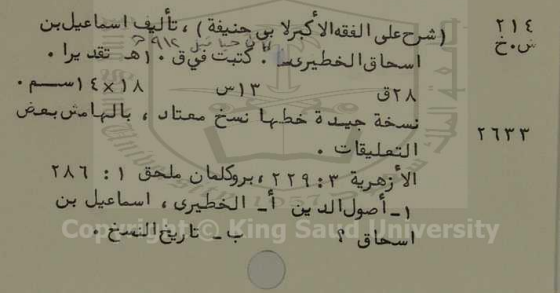 ٢١٤ (شرح على الفقه الأكبر لابي حنيفة) ، تأليف اسماعيل بن
ش.خ اسحاق الخطيرى . كتبت في ق ١٠ هـ تقديرا .
٢٨ق ١٣س ١٨×١٤سم .
٢٦٣٣ نسخة جيدة خطها نسخ معتاد ، بالهامش بعض
التعليقات .
الأزهرية ٣ : ٢٢٩ ، بروكلمان ملحق ١ : ٢٨٦
١ـ أصول الدين أ ـ الخطيرى ، اسماعيل بن
اسحاق ؟ ب ـ تاريخ النسخ .
Copyright © King Saud University